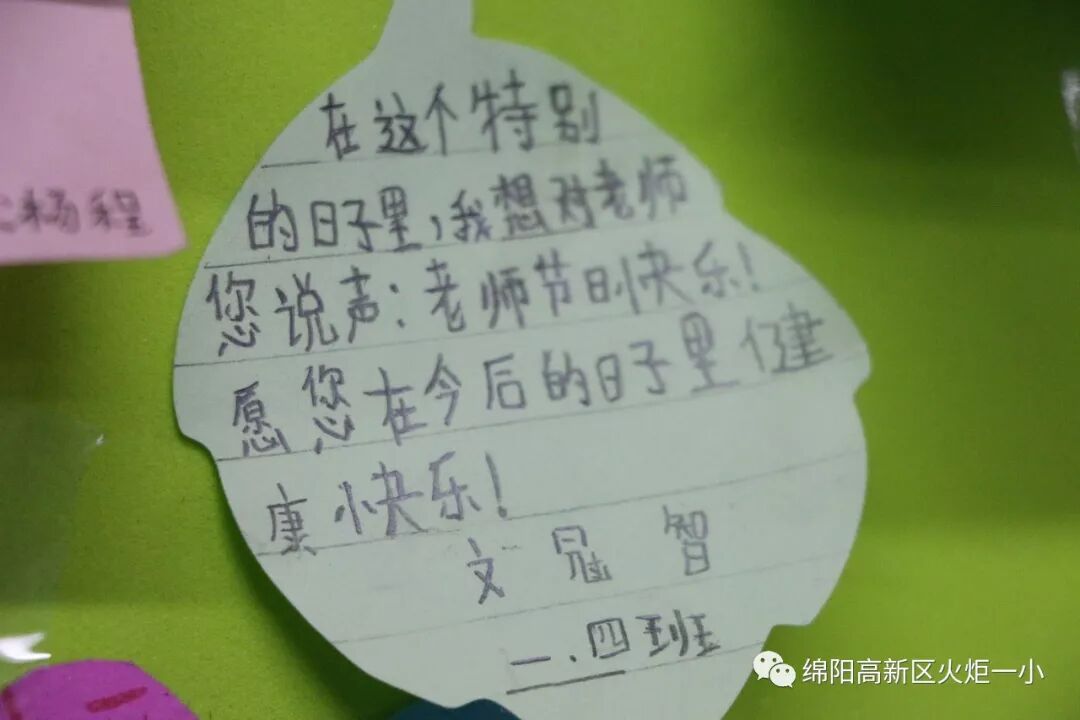 在这个特别
的日子里,我想对老师
您说声:老师节日快乐!
愿您在今后的日子里健
康快乐!
文冠智
一.四班
杨程
绵阳高新区火炬一小